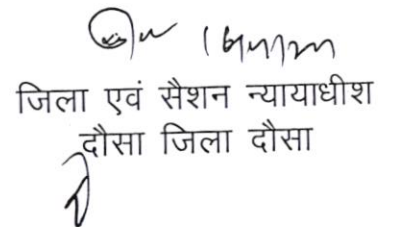 जिला एवं सैशन न्यायाधीश
दौसा जिला दौसा